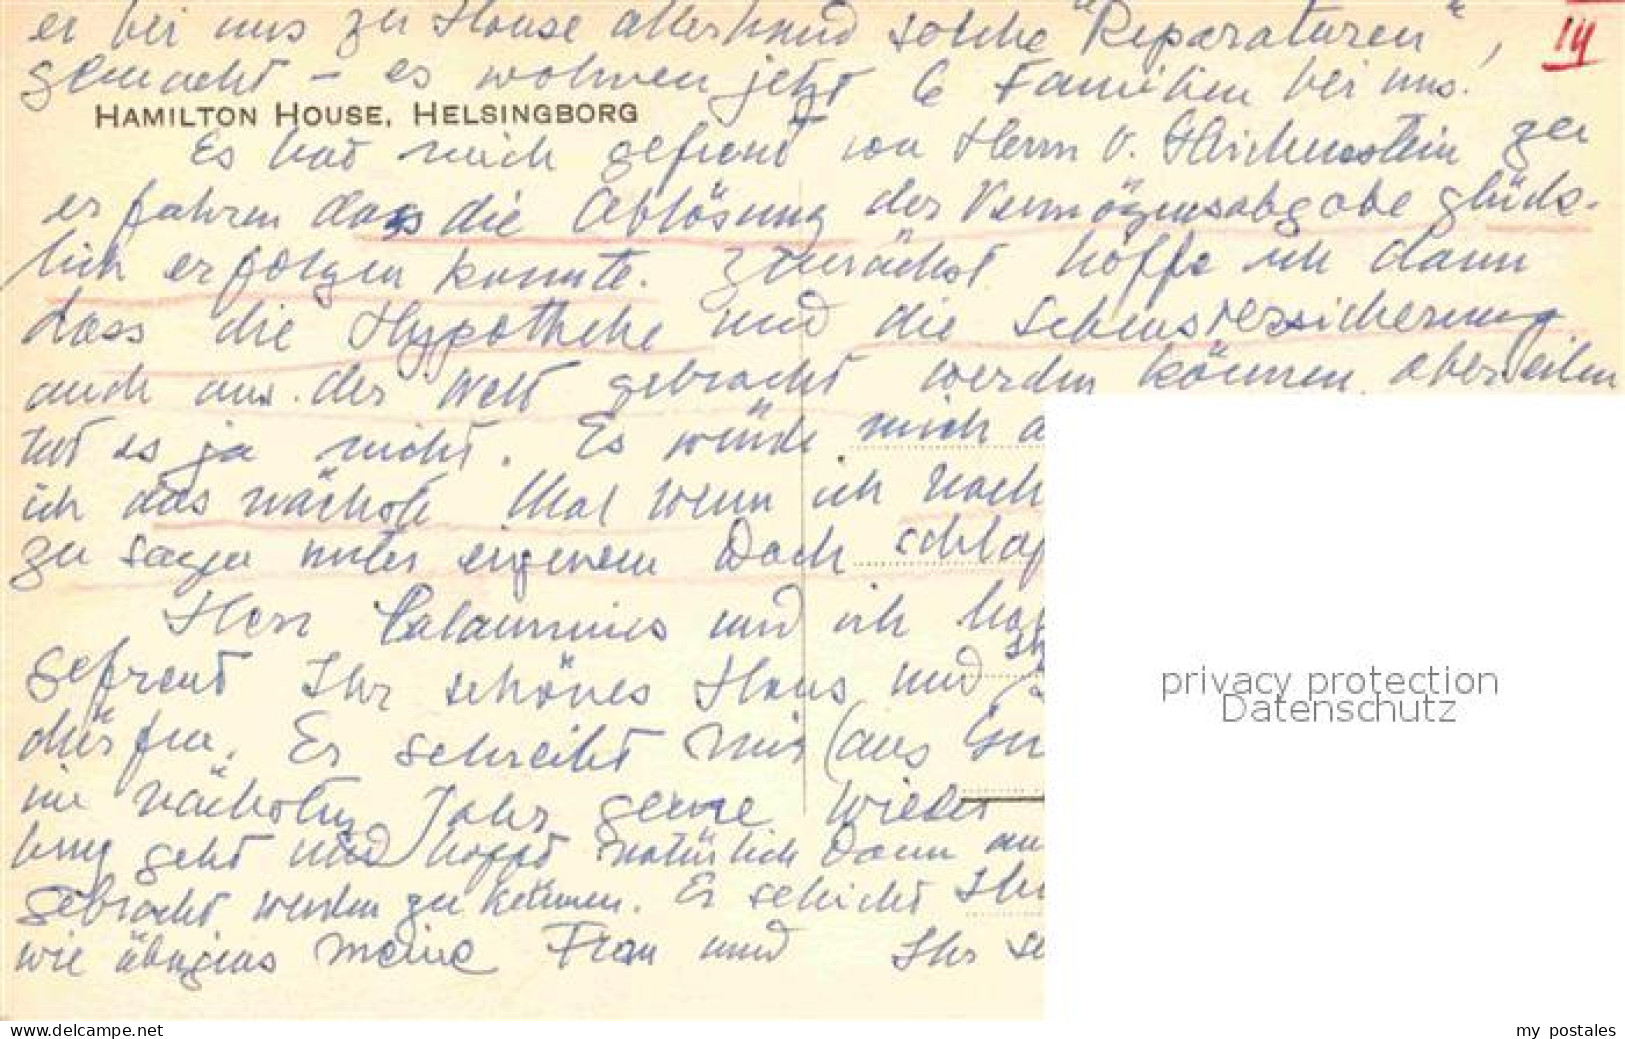 er bei uns zu Hause allerhand solche "Reparaturen",
IV
gemacht – es wohnen jetzt 6 Familien bei uns.
HAMILTON HOUSE, HELSINGBORG
Es hat mich gefreut von Herrn v. zu
erfahren dass die Ablösung der Vermögensabgabe glück-
lich erfolgen konnte. Zunächst hoffe ich dann
dass die Hypotheke und die Lebensversicherung
auch aus der Welt gebracht werden können, aber eilen
tut es ja nicht. Es würde mich
ich das nächste Mal wenn ich nach
zu sagen unter eigenem Dach
Herr und ich
gefreut Ihr schönes Haus und
dürfen. Er schreibt mir (aus
im nächsten Jahr gerne wieder
geht und hofft natürlich dann
gebracht werden zu können. Er schickt
wie übrigens meine Frau und Ihr
privacy protection
Datenschutz
www.delcampe.net
my postales